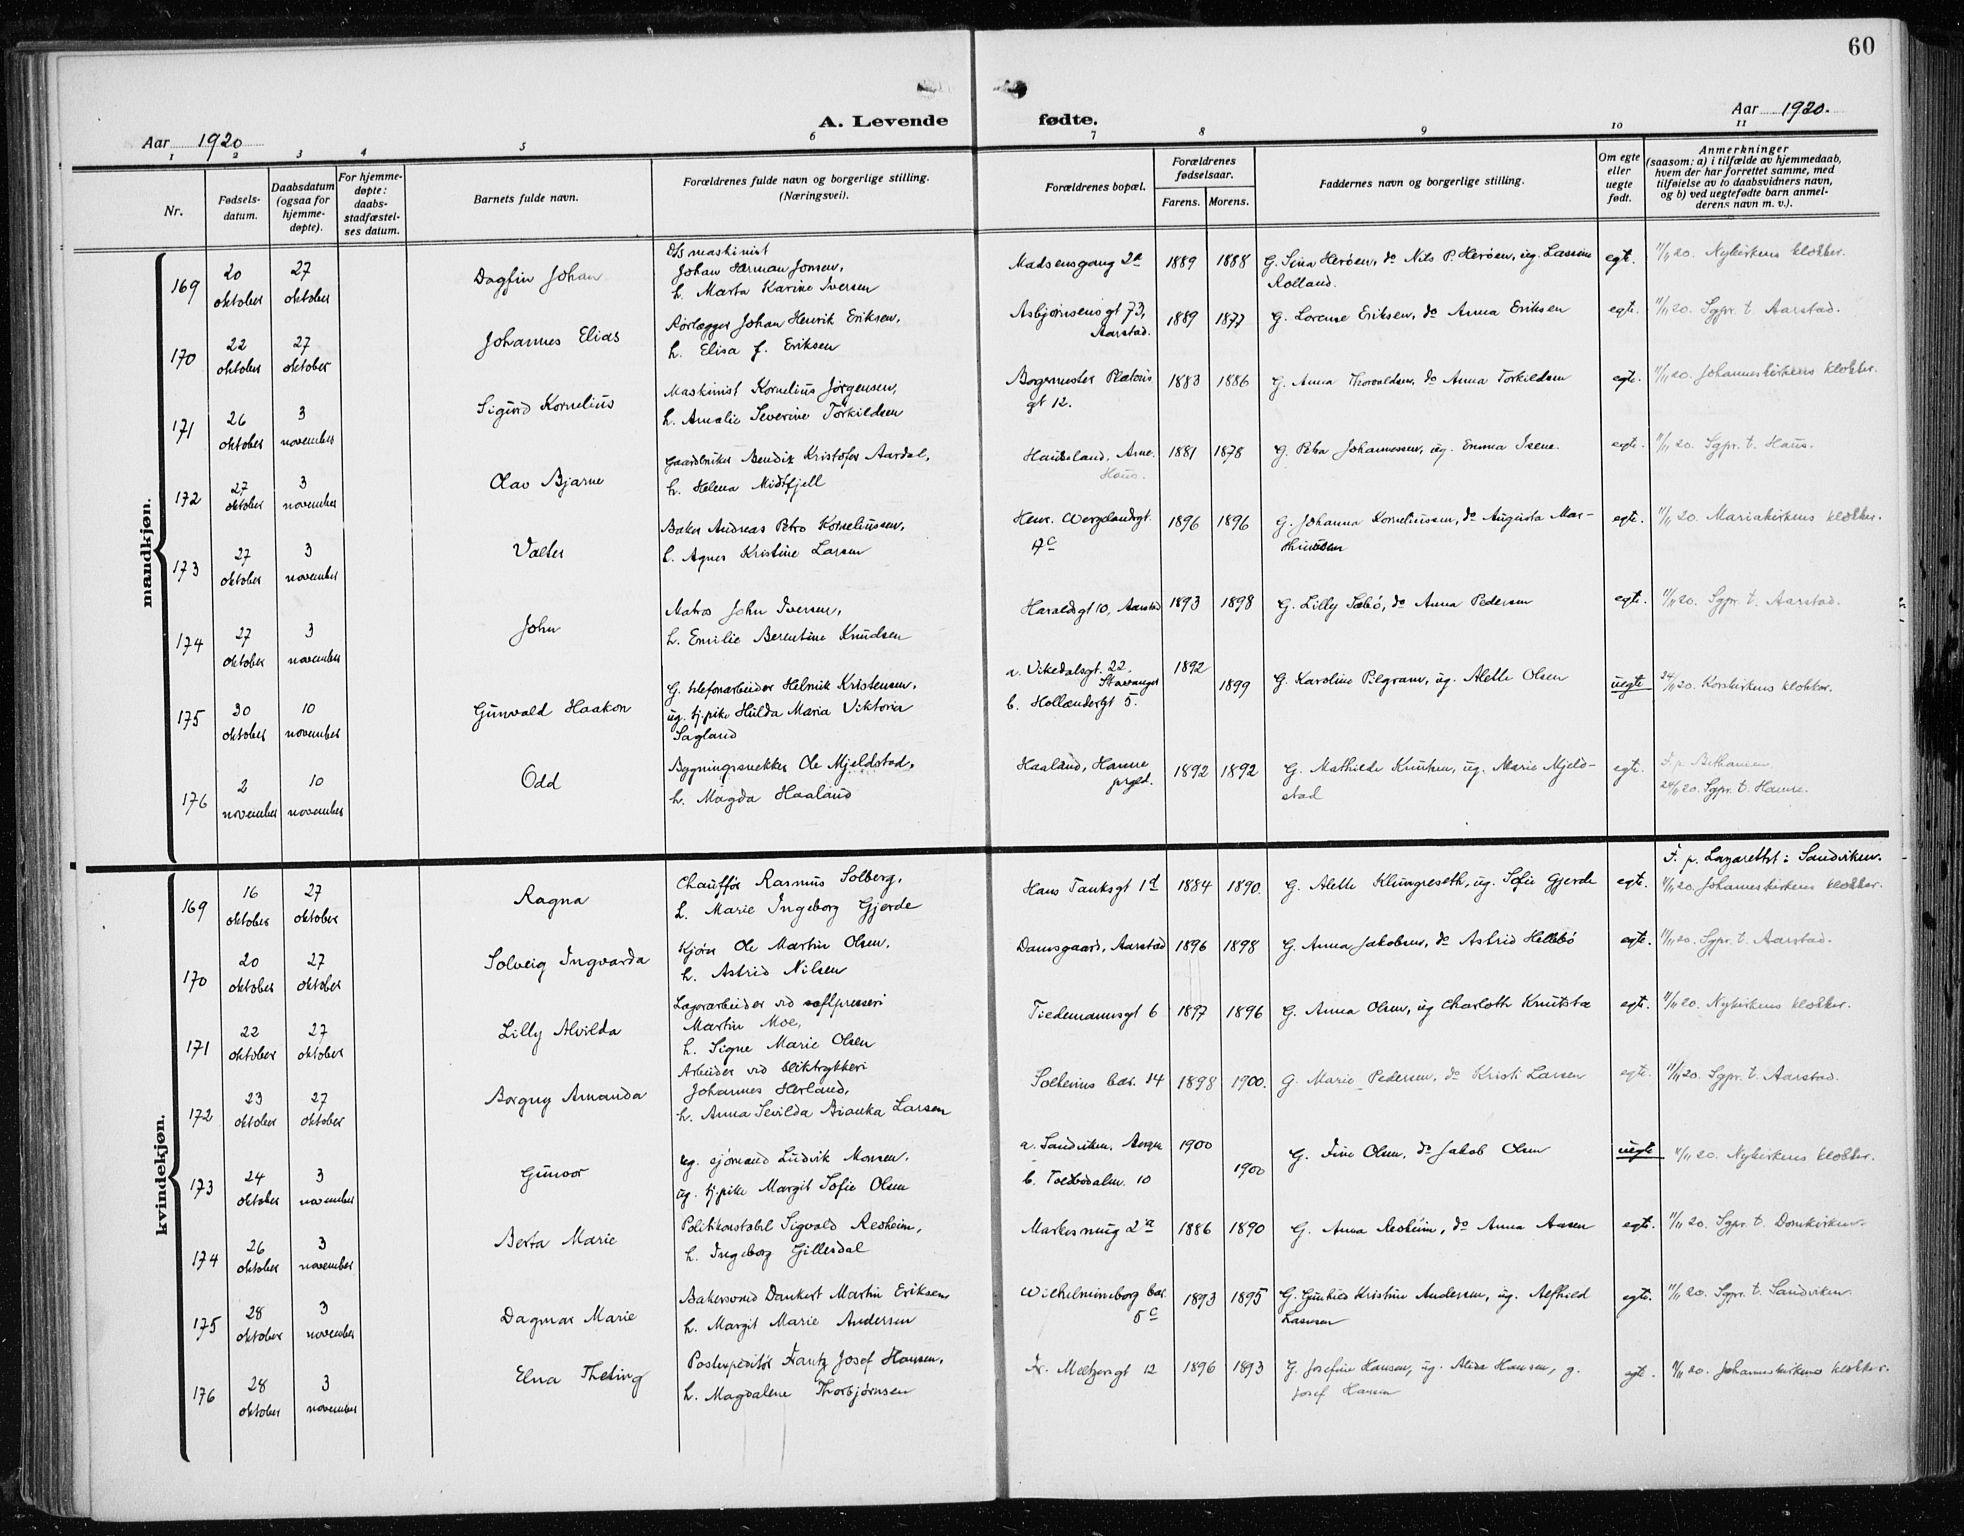 60
Aar 1920
A. Levende fødte.
Aar 1920.
1 2 3 4 5 6 7 8 9 10 11
Nr.
Fødsels-
datum.
Daabsdatum
(ogsaa for
hjemme-
døpte).
For hjemme-
døpte:
daabs-
stadfæstel-
ses datum.
Barnets fulde navn.
Forældrenes fulde navn og borgerlige stilling.
(Næringsvei).
Forældrenes bopæl.
Forældrenes
fødselsaar.
Farens. Morens.
Faddernes navn og borgerlige stilling.
Om egte
eller
uegte
født.
Anmerkninger
(saasom: a) i tilfælde av hjemmedaab,
hvem der har forrettet samme, med
tilføielse av to daabsvidners navn,
og b) ved uegtefødte barn anmel-
derens navn m. v.).
mandkjøn.
169 20 oktober 27 oktober Dagfin Johan
maskinist
Johan Herman Jonsen,
h. Marta Karine Iversen
Madsensgang 2a 1889 1888
G. Sina Herøen, do Nils P. Herøen, ug. Lassine
Rolland.
egte. 11/11 20. Nykirkens klokker.
170 22 oktober 27 oktober Johannes Elias
Rørlægger Johan Henrik Eriksen,
h. Elisa f. Eriksen
Asbjørnsensgt 73,
Aarstad.
1889 1877 G. Lorense Eriksen, do Anna Eriksen egte. 11/11 20. Sgpr. t. Aarstad.
171 26 oktober 3 november Sigurd Kornelius
Maskinist Kornelius Jørgensen,
h. Amalie Severine Torkildsen
Borgermester Platous
gt 12.
1883 1886 G. Anna Thorvaldsen, do Anna Torkildsen egte. 11/11 20. Johanneskirkens klokker.
172 27 oktober 3 november Olav Bjarne
Gaardbruker Bendik Kristofer Aardal,
h. Helena Midtfjell
Haukeland, Arne.
Haus.
1881 1878 G. Petra Johannessen, ug. Emma Isene. egte. 11/11 20. Sgpr. t. Haus.
173 27 oktober 3 november Valter
Baker Andreas Petro Korneliussen,
h. Agnes Kristine Larsen
Henr. Wergelandsgt.
17c
1896 1896 G. Johanna Korneliussen, do Augusta Mar-
thinussen
egte. 11/11 20. Mariakirkens klokker.
174 27 oktober 3 november John
Matros John Iversen,
h. Emilie Berentine Knudsen
Haraldsgt 10, Aarstad 1893 1898 G. Lilly Sæbø, do Anna Pedersen egte. 11/11 20. Sgpr. t. Aarstad.
175 30 oktober 10 november Gunvald Haakon
G. telefonarbeider Helmik Kristensen,
ug. tj.pike Hulda Maria Viktoria
Sagland
a. Vikedalsgt. 22.
Stavanger
b. Hollendergt 5.
1892 1899 G. Karoline Pilgram, ug. Alette Olsen uegte 24/11 20. Korskirkens klokker.
176 2 november 10 november Odd
Bygningssnekker Ole Mjeldstad,
h. Magda Haaland
Haaland, Hamre
prgld.
1892 1892 G. Mathilde Knutsen, ug. Marie Mjeld-
stad
egte. F. p. Bethanien.
24/11 20. Sgpr. t. Hamre.
kvindekjøn.
169 16 oktober 27 oktober Ragna
Chauffør Rasmus Solberg,
h. Marie Ingeborg Gjerde
Hans Tanksgt 1d 1884 1890. G. Alette Klungreseth, ug. Sofie Gjerde egte.
F. p. Lazarettet i Sandviken.
11/11 20. Johanneskirkens klokker.
170 20 oktober 27 oktober Solveig Ingvarda
Kjører Ole Martin Olsen,
h. Astrid Nilsen
Damsgaard, Aarstad 1896 1898 G. Anna Jakobsen, do Astrid Hellebø egte. 11/11 20. Sgpr. t. Aarstad.
171 22 oktober 27 oktober Lilly Alvilda
Lagerarbeider ved saftpresseri
Martin Moe,
h. Signe Marie Olsen
Tiedemannsgt 6 1897 1896 G. Anna Olsen, ug Charloth Knutstø egte. 11/11 20. Nykirkens klokker.
172 23 oktober 27 oktober Borgny Amanda
Arbeider ved bliktrykkeri
Johannes Herland,
h. Anna Sevilda Bianka Larsen
Solheims bak. 14 1898 1900. G. Marie Pedersen, do Kristi Larsen egte. 11/11 20. Sgpr. t. Aarstad.
173 24 oktober 3 november Gunvor
ug. sjømand Ludvik Monsen,
ug. tj.pike Margit Sofie Olsen
a. Sandviken, Bergen
b. Toldbodalm. 10
1900 1900 G. Fine Olsen, do Jakob Olsen uegte 11/11 20. Nykirkens klokker.
174 26 oktober 3 november Berta Marie
Politikonstabel Sigvald Redheim,
h. Ingeborg Gillesdal
Markesmug 2a 1886 1890 G. Anna Redheim, do Anna Aasen egte. 11/11 20. Sgpr. t. Domkirken.
175 28 oktober 3 november Dagmar Marie
Bakersvend Dankert Martin Eriksen
h. Margit Marie Andersen
Wilhelmineborg bak.
5c
1893 1895 G. Gunhild Kristine Andersen, ug. Alfhild
Lassesen
egte. 11/11 20. Sgpr. t. Sandviken.
176 28 oktober 3 november Elna Theting
Postexpeditør Frantz Josef Hansen,
h. Magdalene Thorbjørnsen
Fr. Meltzersgt 12 1896 1893 G. Josefine Hansen, ug. Alida Hansen, g.
Josef Hansen
egte. 11/11 20. Johanneskirkens klokker.